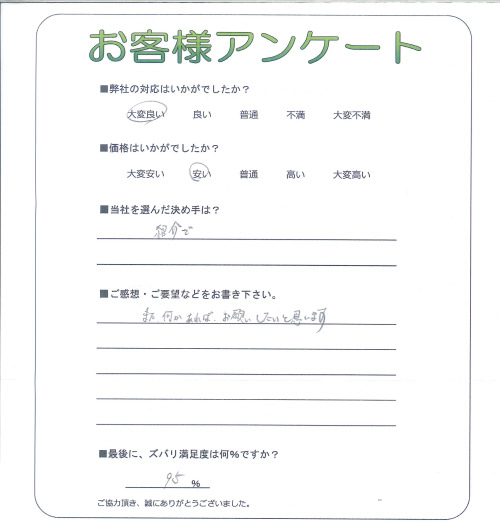 お客様アンケート
■弊社の対応はいかがでしたか？
大変良い 良い 普通 不満 大変不満
■価格はいかがでしたか？
大変安い 安い 普通 高い 大変高い
■当社を選んだ決め手は？
紹介で
■ご感想・ご要望などをお書き下さい。
また何かあれば、お願いしたいと思います
■最後に、ズバリ満足度は何%ですか？
95 %
ご協力頂き、誠にありがとうございました。